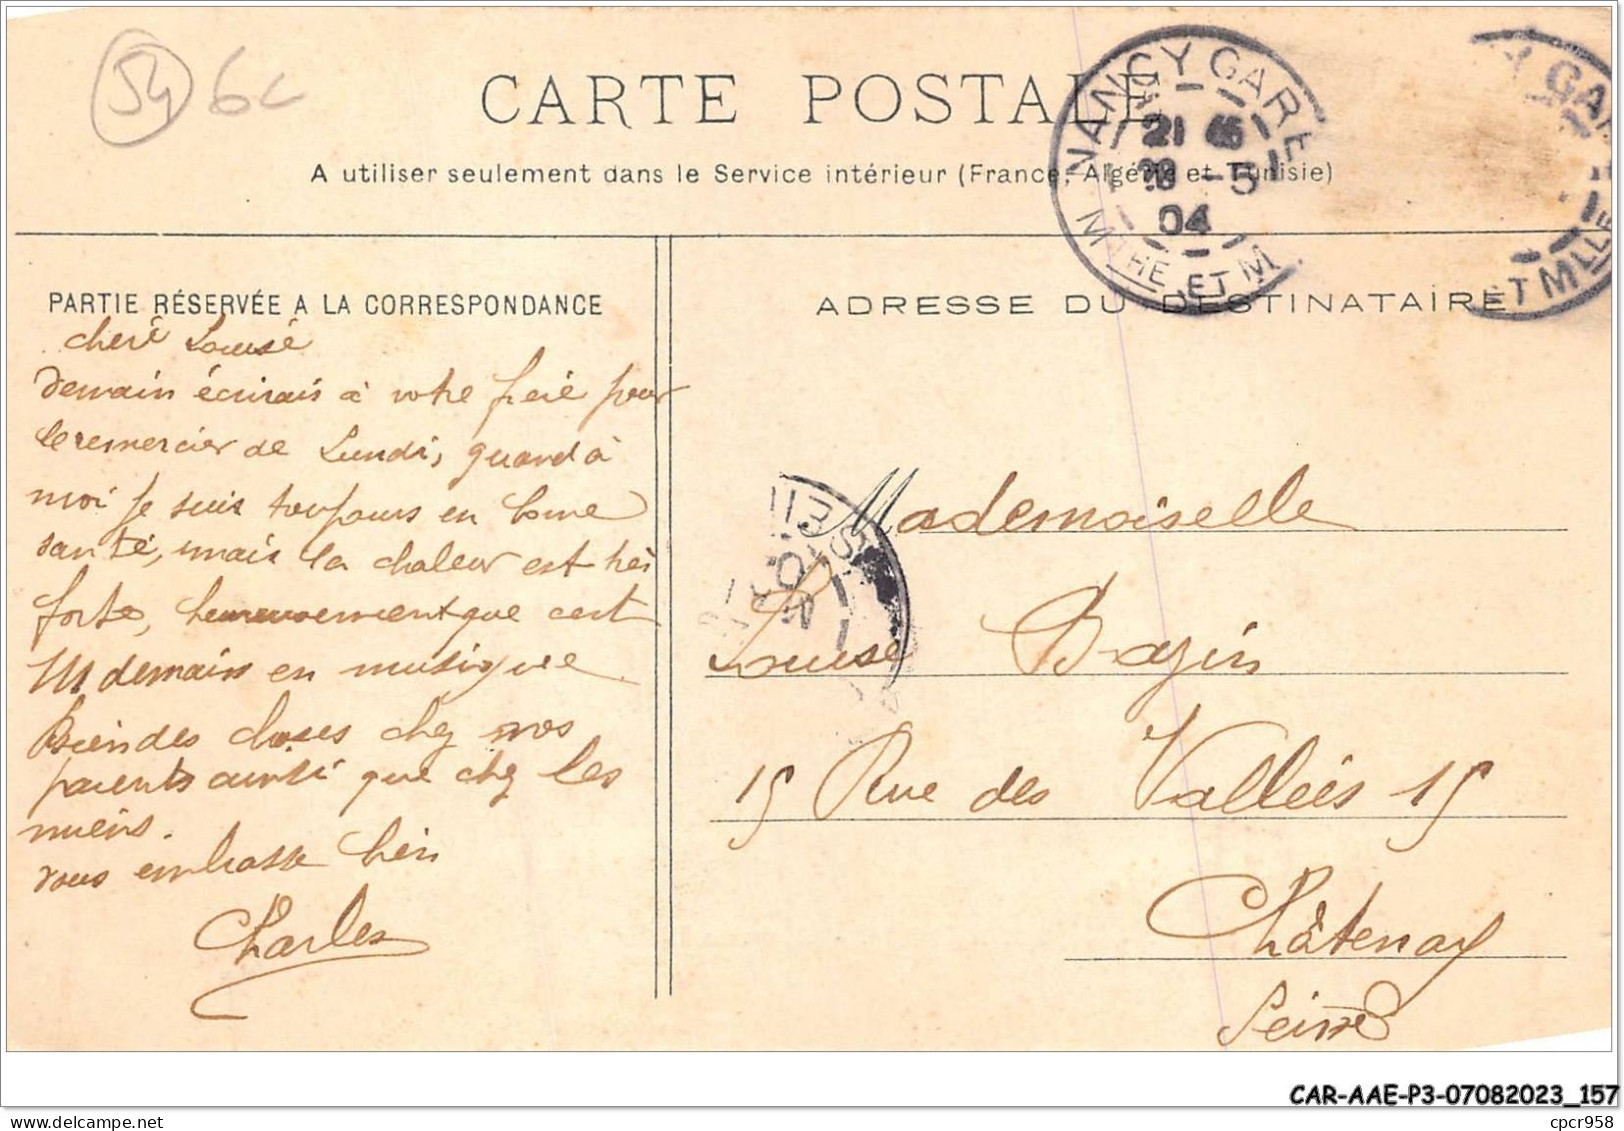 54 6c
CARTE POSTALE
A utiliser seulement dans le Service intérieur (France, Algérie et Tunisie)
NANCY GARE
21 45
5
04
MTHE ET M
Y GAR
ET MLLE
PARTIE RÉSERVÉE A LA CORRESPONDANCE
cheré Louisé
Demain écrirais à votre freré pour
le remercier de Lundi, quand à
moi je suis toujours en bonne
santé, mais la chaleur est très
forte, heureusement que cest
demain en musique
Bien des choses chez vos
parents ainsi que chez les
miens.
vous embrasse bien
Charles
ADRESSE DU DESTINATAIRE
Mademoiselle
Louise Bazin
15 Rue des Vallées 15
Châtenay
Seine
CAR-AAE-P3-07082023_157
cpcr958